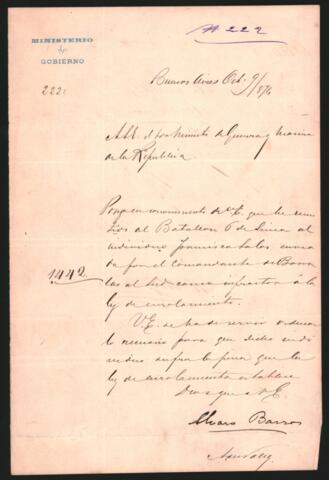 Nº 222
MINISTERIO
de
GOBIERNO
222.
Buenos Aires Oct. 9/876
A S.E. el Sor Ministro de Guerra y Marina
de la República.
Pongo en conocimiento de V.E. que he remi
tido al Batallon 6 de Linea al
individuo Francisco Salas envia
do por el Comandante de Barra
1442.
cas al Sud como infractor á la
ley de enrolamiento.
V.E. se ha de servir ordenar
lo necesario para que dicho indi
viduo sufra la pena que la
ley de enrolamiento establece
Dios gue á V.E.
Alvaro Barros